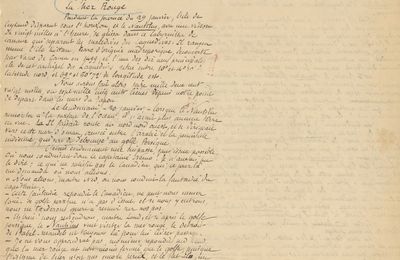 La Mer Rouge
Pendant la journée du 29 janvier, l'île de
Ceylan disparut sous l'horizon, et le Nautilus, avec une vitesse
de vingt milles à l'heure, se glissa dans le labyrinthe de
canaux qui séparent les Maledives des Laquedives. Il rangea
même l'île Kittan, terre d'origine madréporique, découverte
par Vasco de Gama en 1499, et l'une des dix-neuf principales
îles de cet archipel des Laquedives, située entre 10° et 14°30'
latitude nord et 69° et 50°72' de longitude est.
Nous avions fait alors seize mille deux cent
vingt milles, ou sept mille cinq cents lieues depuis notre point
de départ dans les mers du Japon.
Le lendemain - 30 janvier - lorsque le Nautilus
remonta à la surface de l'Océan, il n'avait plus aucune terre
en vue. Il fit route au nord-nord-ouest, et se dirigeait
vers cette mer d'Oman, creusée entre l'Arabie et la péninsule
indienne, qui sert de débouché au golfe Persique.
C'était évidemment une impasse, sans issue possible.
Où nous conduisait donc le capitaine Nemo? Je n'aurais pu
le dire, ce qui ne satisfit pas le Canadien, qui, ce jour-là
me demanda où nous allions.
- Nous allons, maître Ned, où nous conduit la fantaisie du
capitaine.
- Cette fantaisie, répondit le Canadien, ne peut nous mener
loin. Le golfe Persique n'a pas d'issue, et si nous y entrons
nous ne tarderons guère à revenir sur nos pas.
- Eh bien! nous reviendrons, maître Land, et si après le golfe
Persique, le Nautilus veut visiter la mer Rouge, le détroit
de Babel-Mandeb est toujours là pour lui livrer passage.
- Je ne vous apprendrai pas, monsieur, répondit Ned Land
que la mer Rouge est non moins fermée que le golfe, puisque
l'isthme de Suez n'est pas encore percé, et le fut-il